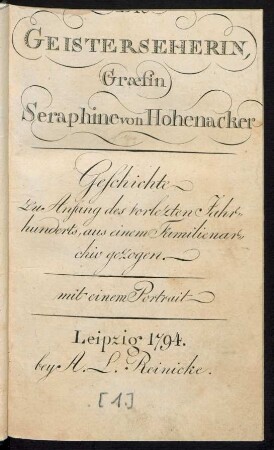 GEISTERSEHERIN,
Græfin
Seraphine von Hohenacker
Geschichte
zu Anfang des vorletzten Jahr-
hunderts, aus einem Familienar-
chiv gezogen.
mit einem Portrait
Leipzig 1794.
bey A. L. Reinicke.
[1]